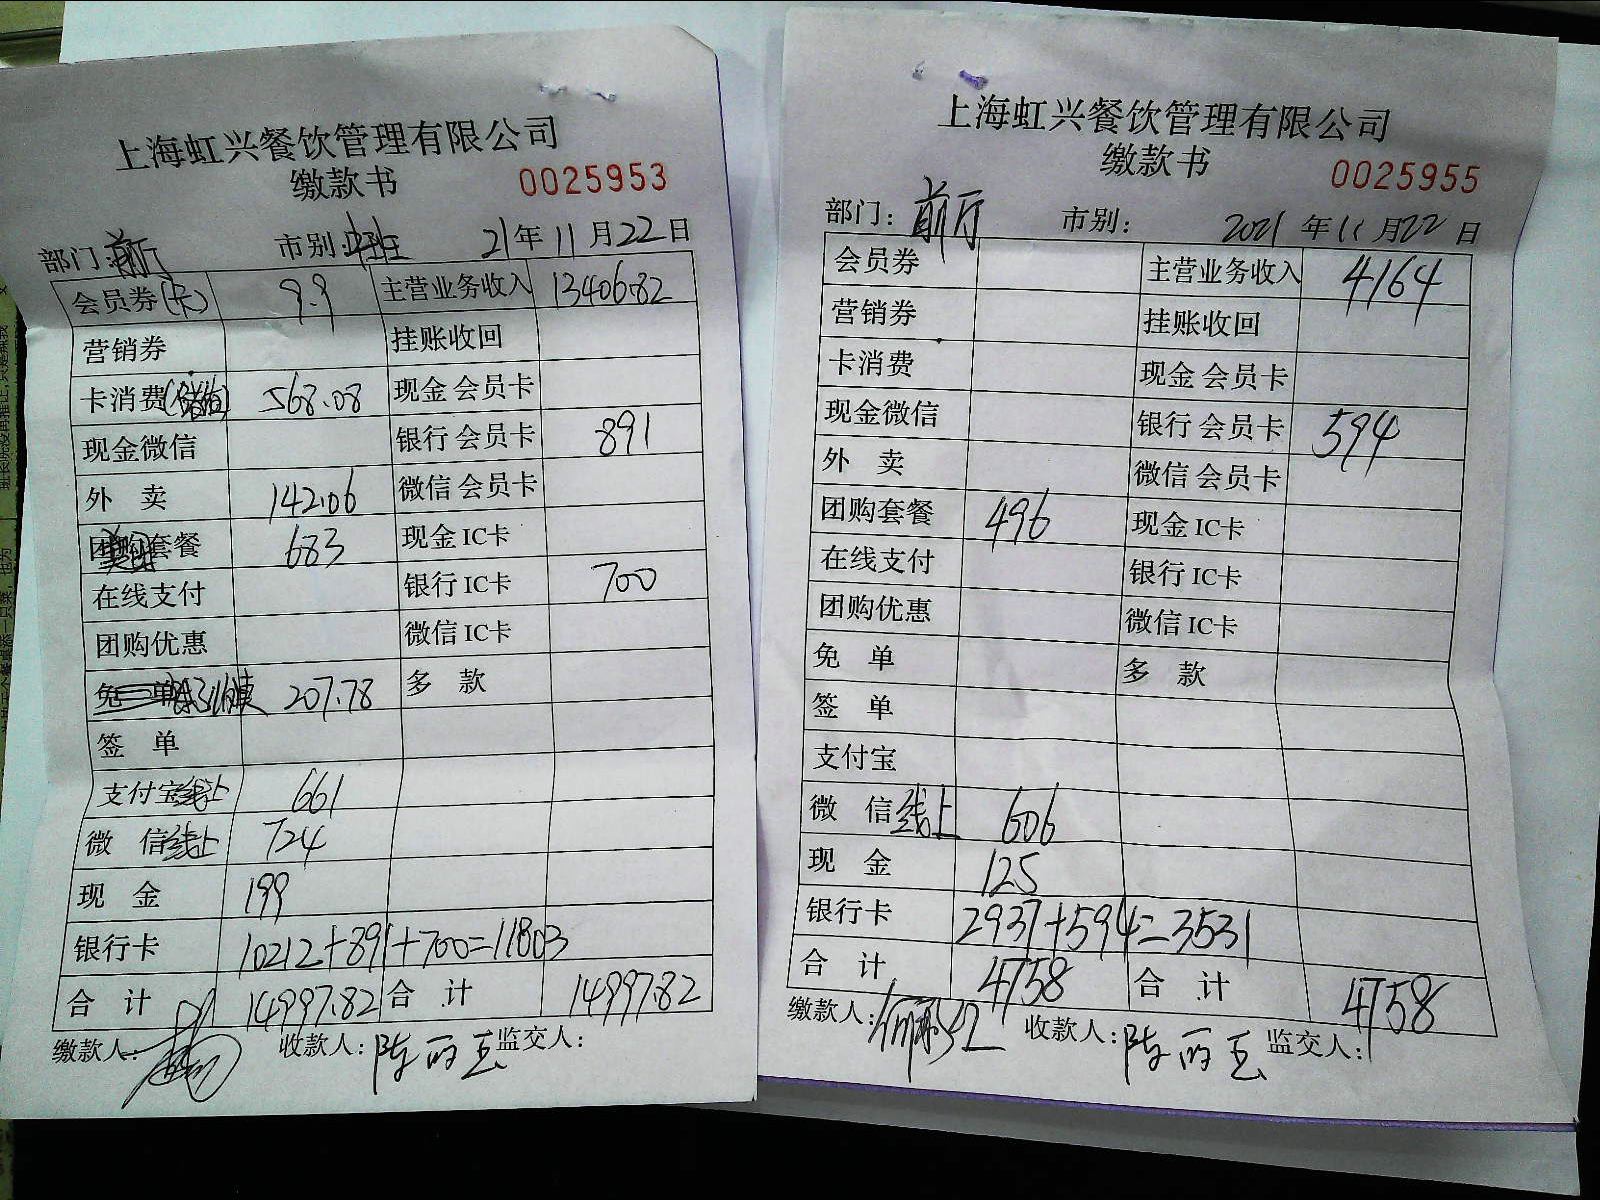 上海虹兴餐饮管理有限公司
缴款书 0025953
部门:前厅 市别: 21年11月22日
会员券(卡) 9.9 主营业务收入 13406.82
营销券 挂账收回
卡消费 568.08 现金 会员卡
现金微信 银行 会员卡 891
外 卖 142.06 微信 会员卡
套餐 683 现金 IC卡
在线支付 银行 IC卡 700
团购优惠 微信 IC卡
免 单 207.78 多 款
签 单
支付宝线上 661
微 信线上 724
现 金 199
银行卡 10212+891+700=11803
合 计 14997.82 合 计 14997.82
缴款人: 收款人:陈丽玉 监交人:
上海虹兴餐饮管理有限公司
缴款书 0025955
部门:前厅 市别: 2021年11月22日
会员券 主营业务收入 4164
营销券 挂账收回
卡消费 现金 会员卡
现金微信 银行 会员卡 594
外 卖 微信 会员卡
团购套餐 496 现金 IC卡
在线支付 银行 IC卡
团购优惠 微信 IC卡
免 单 多 款
签 单
支付宝
微 信线上 606
现 金 125
银行卡 2937+594=3531
合 计 4758 合 计 4758
缴款人: 收款人:陈丽玉 监交人: